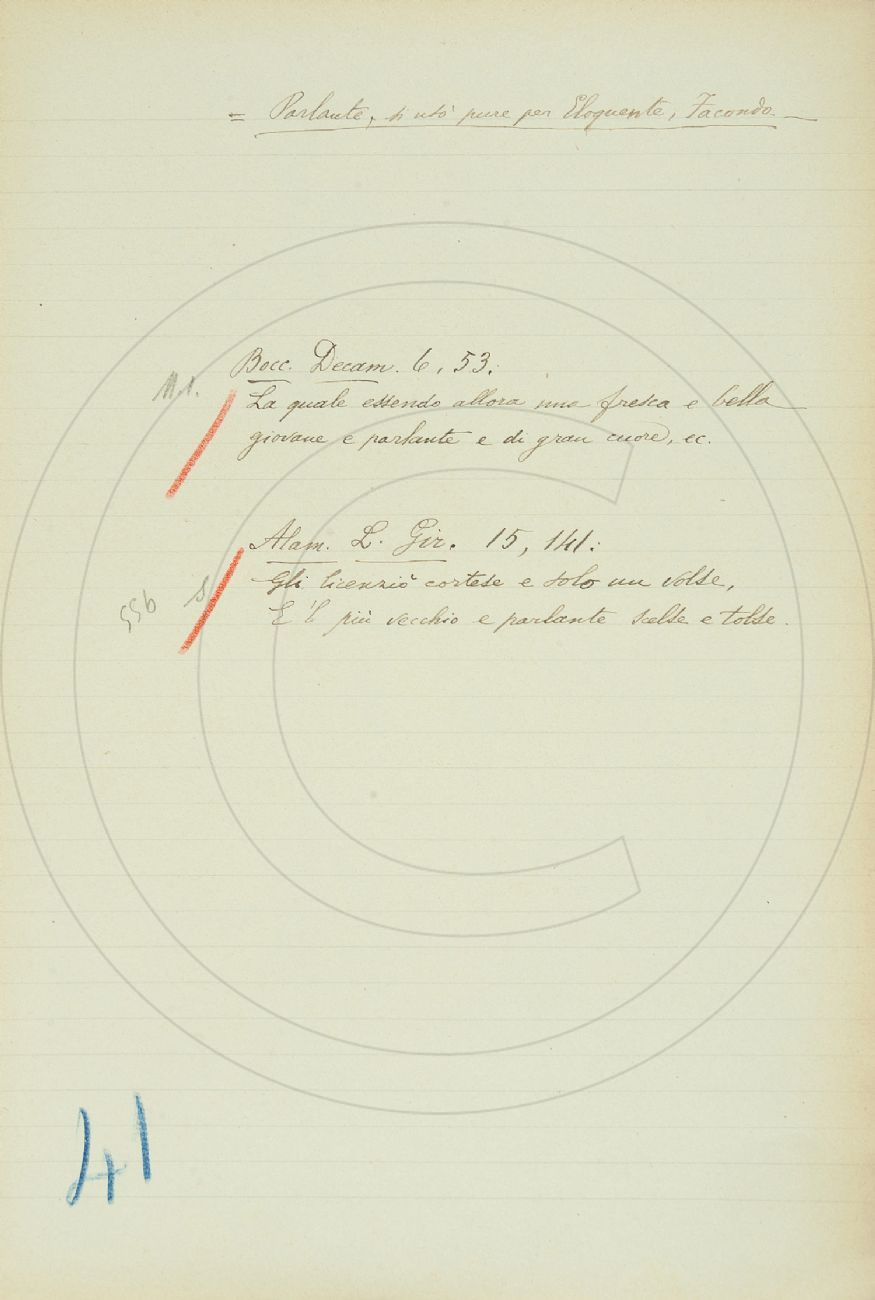 = Parlante, si usò pure per Eloquente, Facondo.
Bocc. Decam. 6, 53:
La quale essendo allora una fresca e bella
giovane e parlante e di gran cuore, ec.
Alam. L. Gir. 15, 141:
Gli licenziò cortese e solo un volse,
E 'l più vecchio e parlante scelse e tolse.
556 S
41